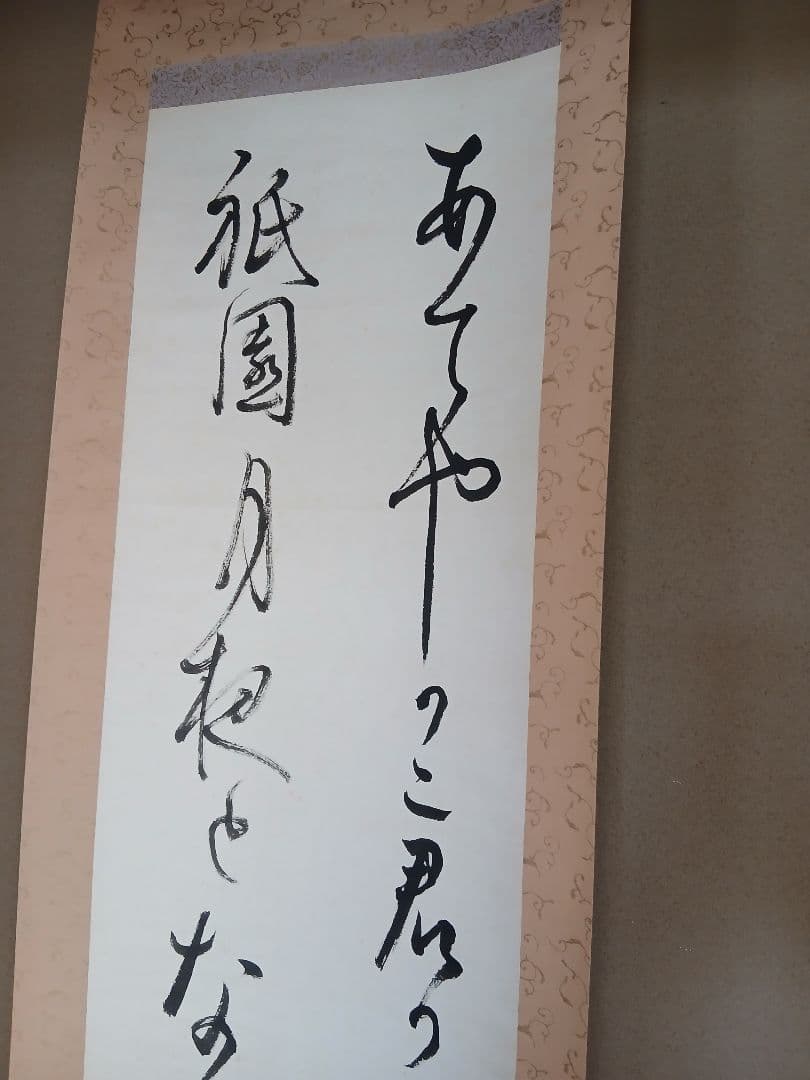 あてやかに君か
祇園月夜とな